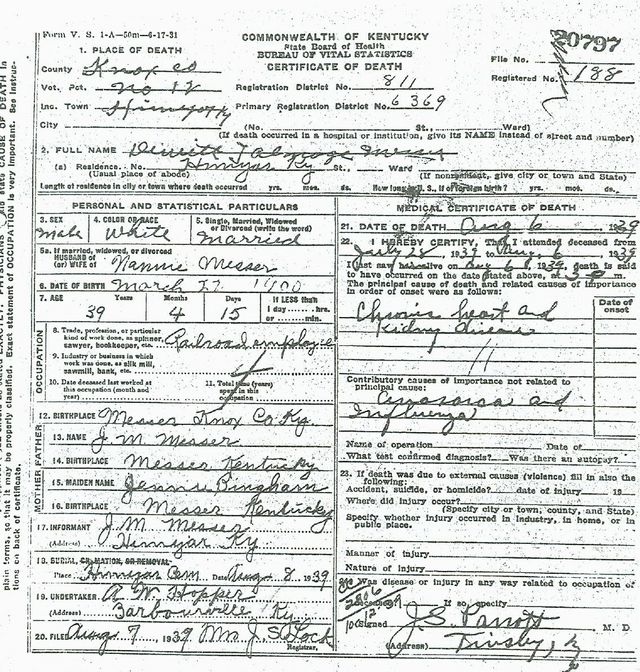 Form V. S. 1-A—50m—6-17-31
COMMONWEALTH OF KENTUCKY
State Board of Health
BUREAU OF VITAL STATISTICS
CERTIFICATE OF DEATH
20797
File No.
Registered No. 188
1. PLACE OF DEATH
County Knox Co
Vot. Pct. No 12
Registration District No. 811
Inc. Town Himyar Ky
Primary Registration District No. 6369
City (No. St., Ward)
(If death occurred in a hospital or institution, give its NAME instead of street and number)
2. FULL NAME Dewitt Talmage Messer
(a) Residence. No. Himyar Ky St., Ward
(Usual place of abode) (If nonresident, give city or town and State)
Length of residence in city or town where death occurred yrs. mos. ds. How long in U. S., if of foreign birth? yrs. mos. ds.
PERSONAL AND STATISTICAL PARTICULARS
3. SEX Male
4. COLOR OR RACE White
5. Single, Married, Widowed or Divorced (write the word) Married
5a. If married, widowed, or divorced
HUSBAND of
(or) WIFE of Nannie Messer
6. DATE OF BIRTH March 22 1900
7. AGE Years Months Days If LESS than
39 4 15 1 day hrs.
or min.
OCCUPATION
8. Trade, profession, or particular
kind of work done, as spinner,
sawyer, bookkeeper, etc. Railroad employee
9. Industry or business in which
work was done, as silk mill,
sawmill, bank, etc.
10. Date deceased last worked at
this occupation (month and
year)
11. Total time (years)
spent in this
occupation
12. BIRTHPLACE Messer Knox Co Ky.
FATHER
13. NAME J. M. Messer
14. BIRTHPLACE Messer Kentucky
MOTHER
15. MAIDEN NAME Jennie Bingham
16. BIRTHPLACE Messer Kentucky
17. INFORMANT J. M. Messer
(Address) Himyar Ky
18. BURIAL, CREMATION, OR REMOVAL
Place Himyar Cem Date Aug 8, 1939
19. UNDERTAKER A. W. Hopper
(Address) Barbourville Ky.
20. FILED Aug 7, 1939 Mrs J. S. Lock
Registrar.
MEDICAL CERTIFICATE OF DEATH
21. DATE OF DEATH Aug 6 1939
22. I HEREBY CERTIFY, That I attended deceased from
July 28 1939 to Aug. 6 1939
I last saw him alive on Aug 6, 1939, death is said
to have occurred on the date stated above, at
The principal cause of death and related causes of importance
in order of onset were as follows:
Date of
onset
Chronic heart and
Kidney disease
Contributory causes of importance not related to
principal cause:
Anasarca and
Influenza
Name of operation Date of
What test confirmed diagnosis? Was there an autopsy?
23. If death was due to external causes (violence) fill in also the
following:
Accident, suicide, or homicide? date of injury 19
Where did injury occur?
(Specify city or town, county, and State)
Specify whether injury occurred in industry, in home, or in
public place.
Manner of injury
Nature of injury
24. Was disease or injury in any way related to occupation of
deceased?
If so, specify
(Signed) J. S. Parrott M. D.
(Address)
plain terms, so that it may be properly classified. Exact statement of OCCUPATION is very important. See instruc-
tions on back of certificate.